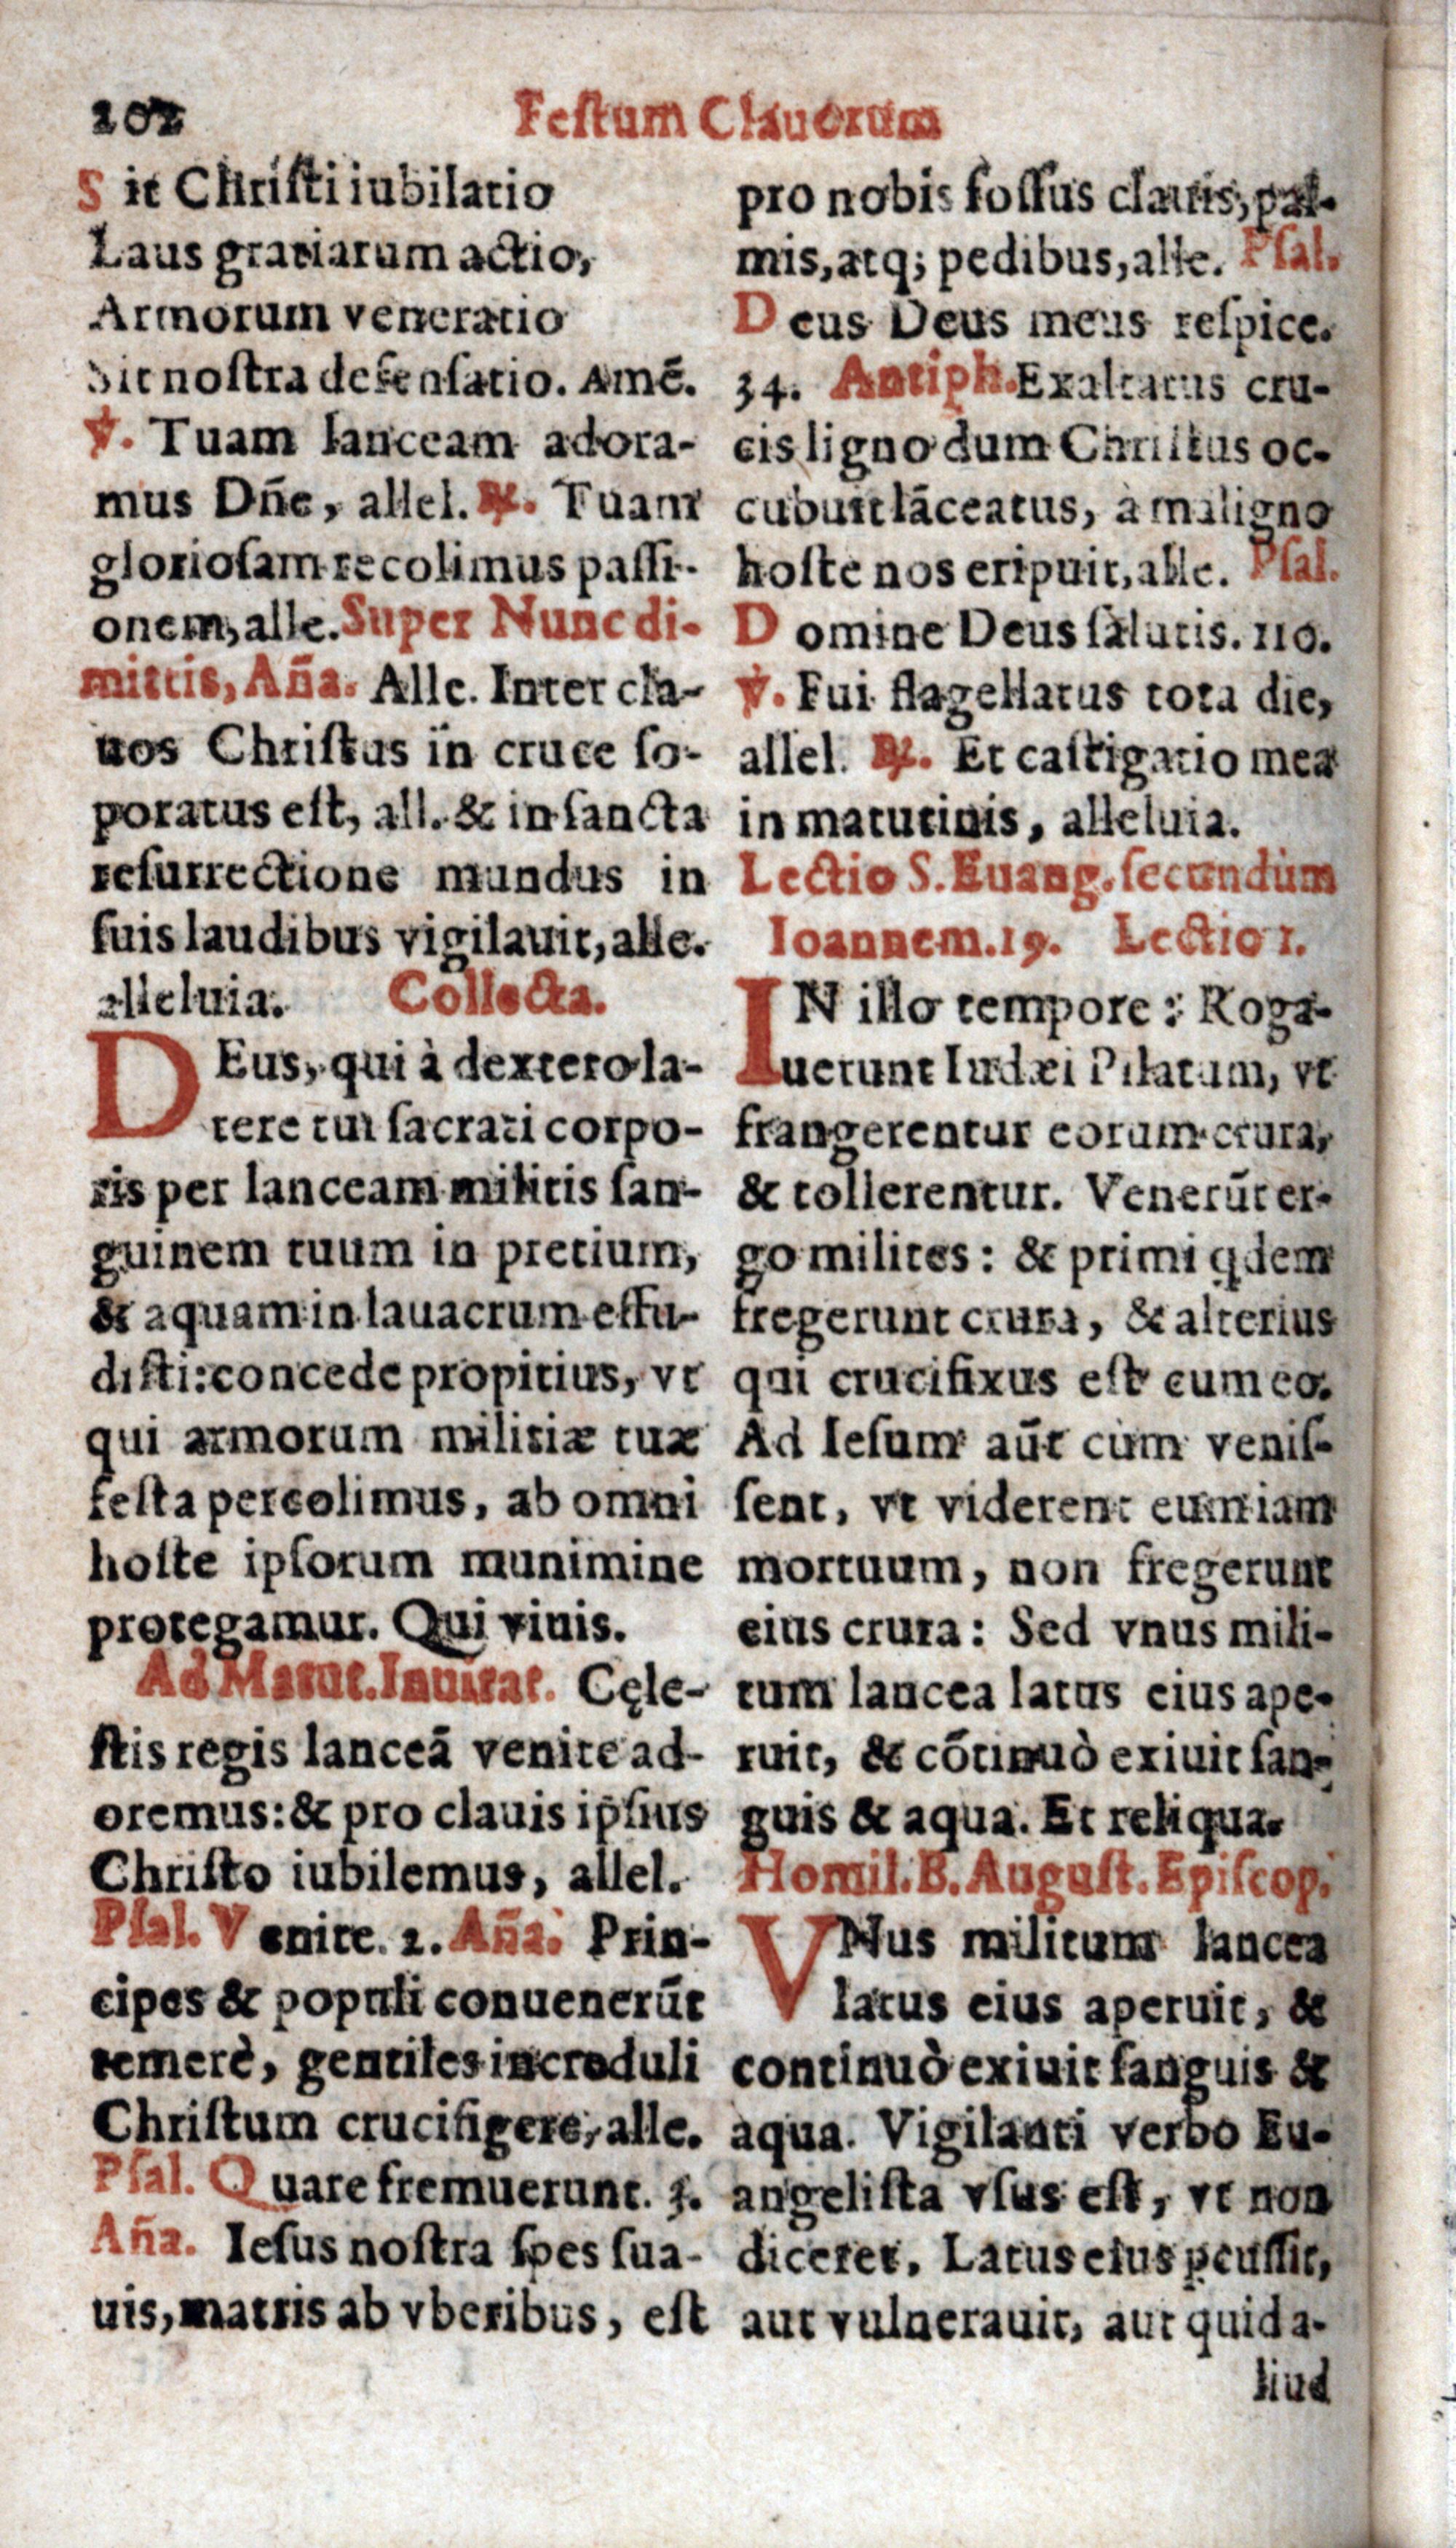 202
Festum Clauorum
Sit Christi iubilatio
Laus gratiarum actio,
Armorum veneratio
Sit nostra defensatio. Amẽ.
℣. Tuam lanceam adora-
mus Dñe, allel. ℟. Tuam
gloriosam recolimus passi-
onem, alle. Super Nunc di-
mittis, Aña. Alle. Inter cla-
uos Christus in cruce so-
poratus est, all. & in sancta
resurrectione mundus in
suis laudibus vigilauit, alle.
alleluia. Collecta.
DEus, qui à dextero la-
tere tui sacrati corpo-
ris per lanceam militis san-
guinem tuum in pretium,
& aquam in lauacrum effu-
disti: concede propitius, vt
qui armorum militiæ tuæ
festa percolimus, ab omni
hoste ipsorum munimine
protegamur. Qui viuis.
Ad Matut. Inuitat. Cęle-
stis regis lanceã venite ad-
oremus: & pro clauis ipsius
Christo iubilemus, allel.
Psal. Venite. 2. Aña. Prin-
cipes & populi conuenerũt
temerè, gentiles increduli
Christum crucifigere, alle.
Psal. Quare fremuerunt. 3.
Aña. Iesus nostra spes sua-
uis, matris ab vberibus, est
pro nobis fossus clauis, pal-
mis, atq; pedibus, alle. Psal.
Deus Deus meus respice.
34. Antiph. Exaltatus cru-
cis ligno dum Christus oc-
cubuit lãceatus, à maligno
hoste nos eripuit, alle. Psal.
Domine Deus salutis. 110.
℣. Fui flagellatus tota die,
allel. ℟. Et castigatio mea
in matutinis, alleluia.
Lectio S. Euang. secundùm
Ioannem. 19. Lectio 1.
IN illo tempore: Roga-
uerunt Iudæi Pilatum, vt
frangerentur eorum crura,
& tollerentur. Venerũt er-
go milites: & primi qdem
fregerunt crura, & alterius
qui crucifixus est cum eo.
Ad Iesum aũt cùm venis-
sent, vt viderent eum iam
mortuum, non fregerunt
eius crura: Sed vnus mili-
tum lancea latus eius ape-
ruit, & cõtinuò exiuit san-
guis & aqua. Et reliqua.
Homil. B. August. Episcop.
VNus militum lancea
latus eius aperuit, &
continuò exiuit sanguis &
aqua. Vigilanti verbo Eu-
angelista vsus est, vt non
diceret, Latus eius ꝑcussit,
aut vulnerauit, aut quid a-
liud